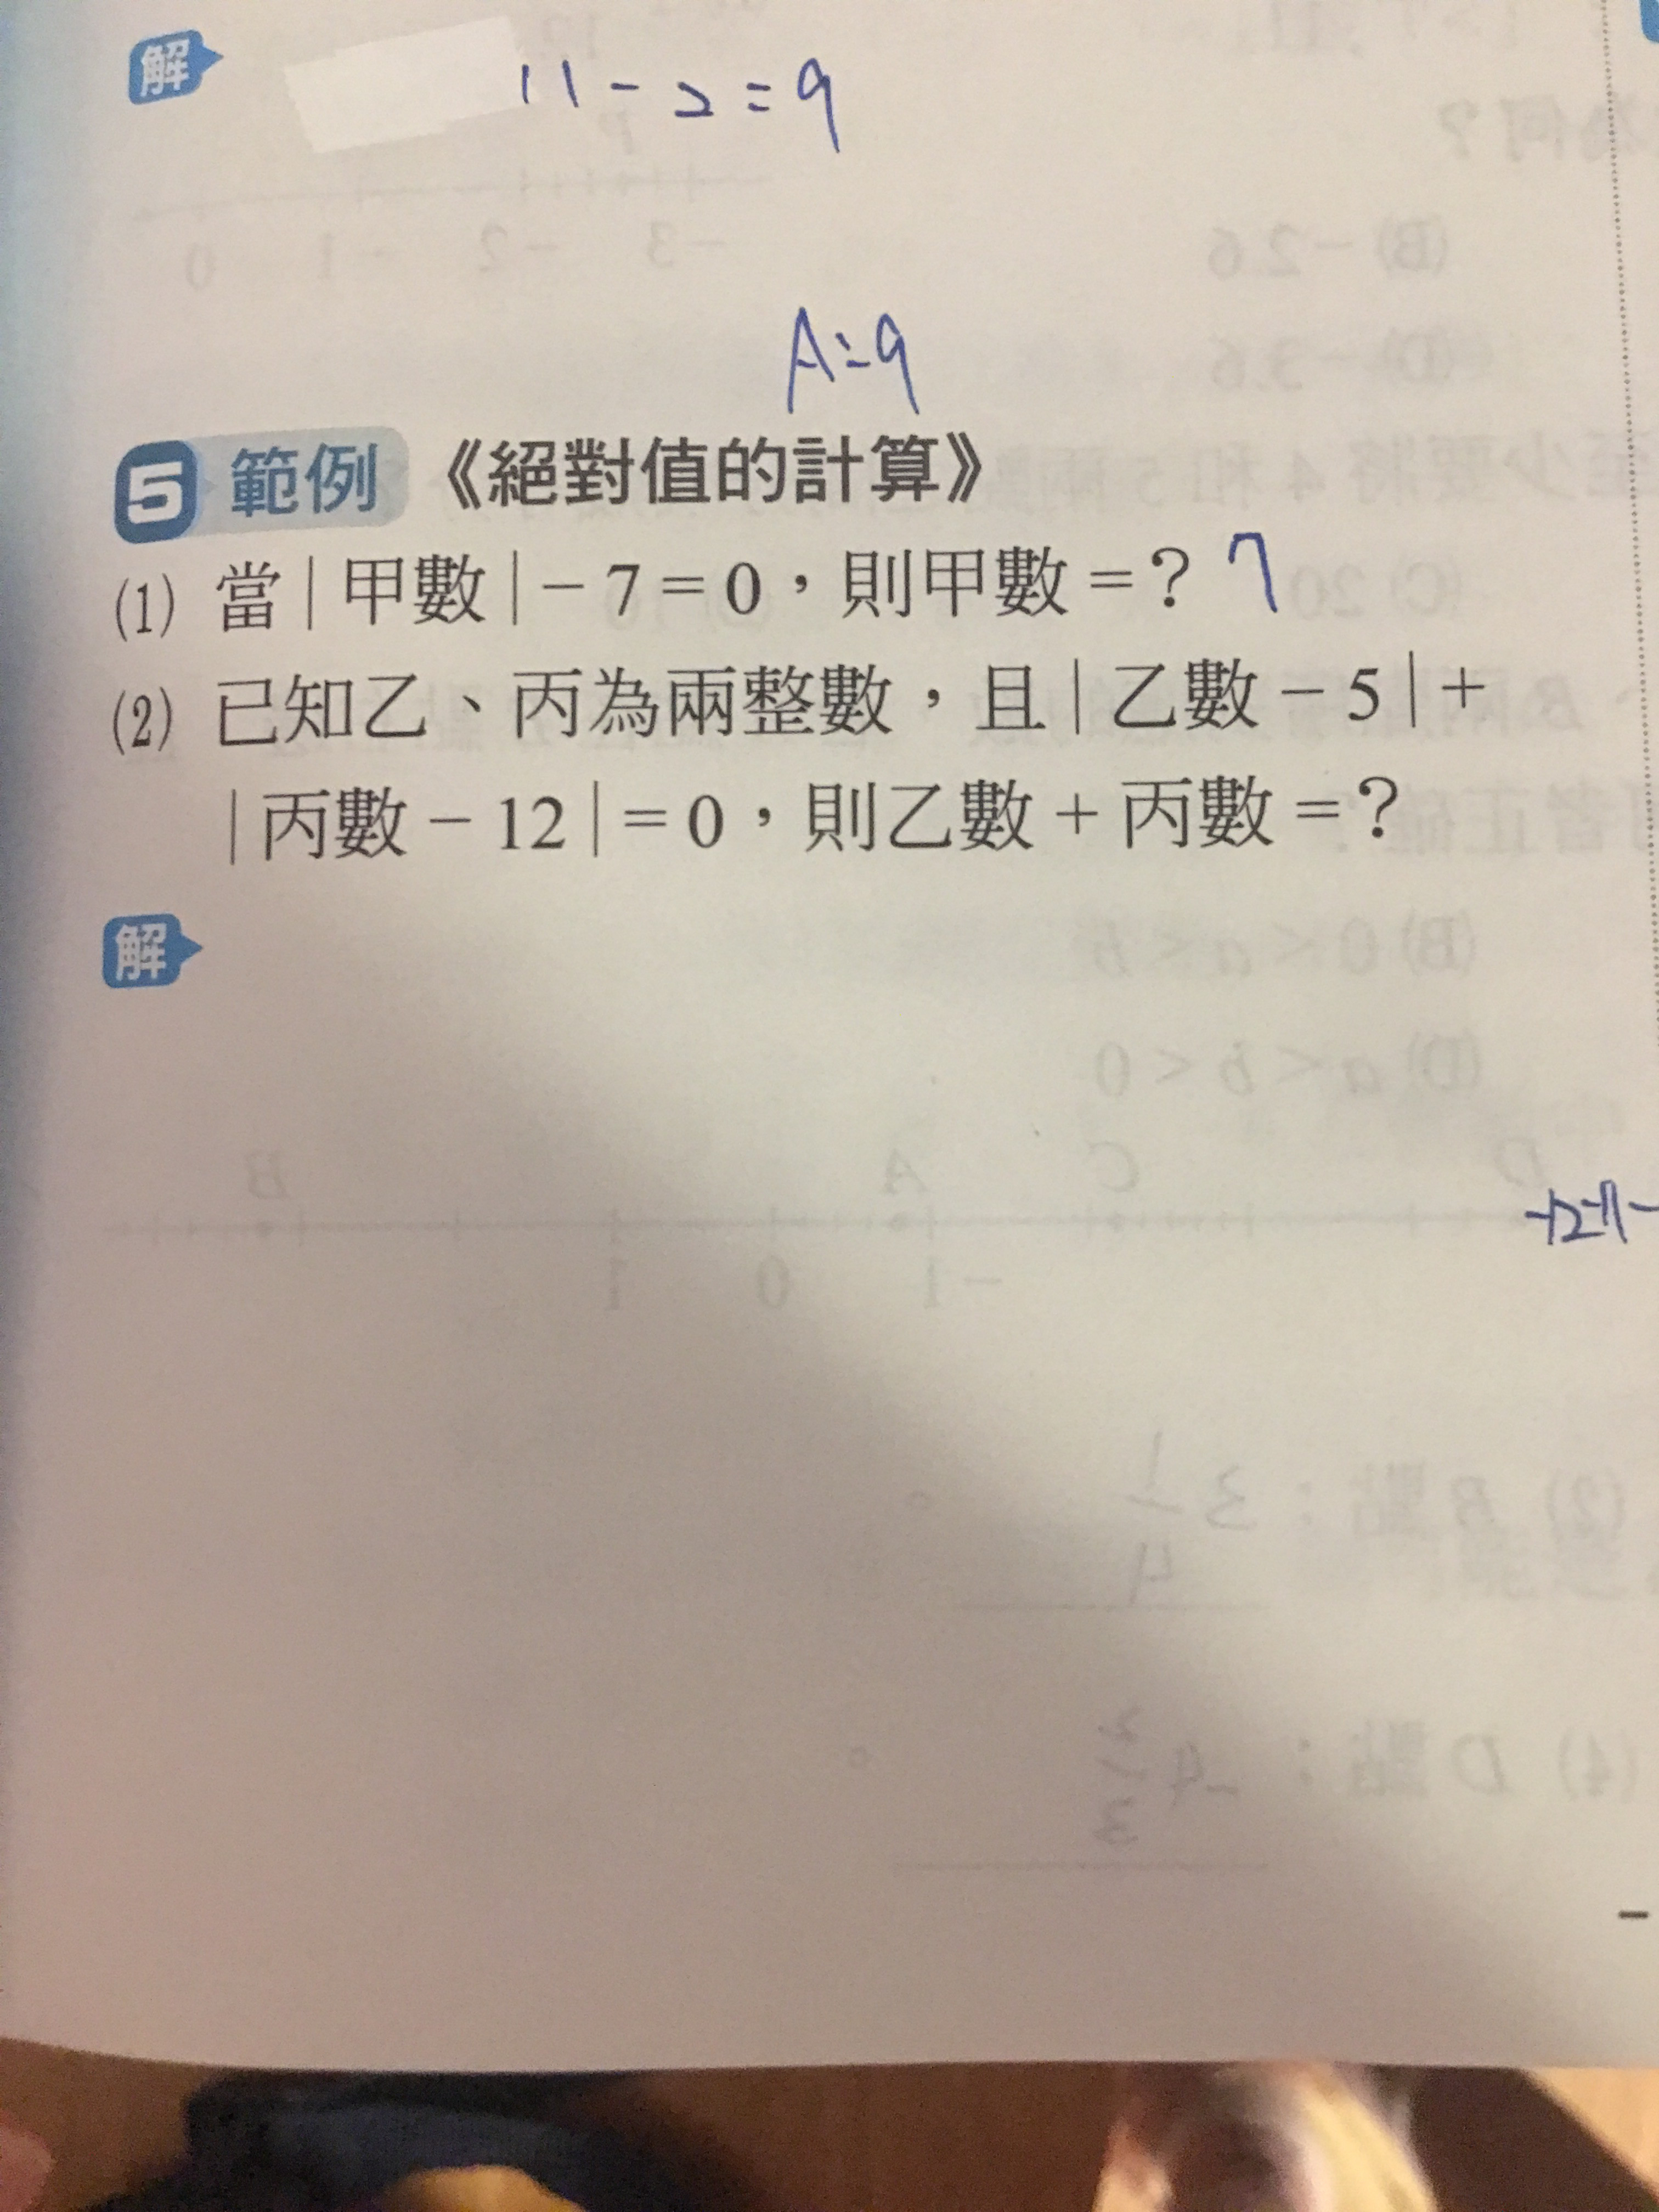 解
11-2=9
A:9
5 範例 《絕對值的計算》
(1) 當|甲數|-7=0,則甲數=? 7
(2) 已知乙、丙為兩整數,且|乙數-5|+
|丙數-12|=0,則乙數+丙數=?
解